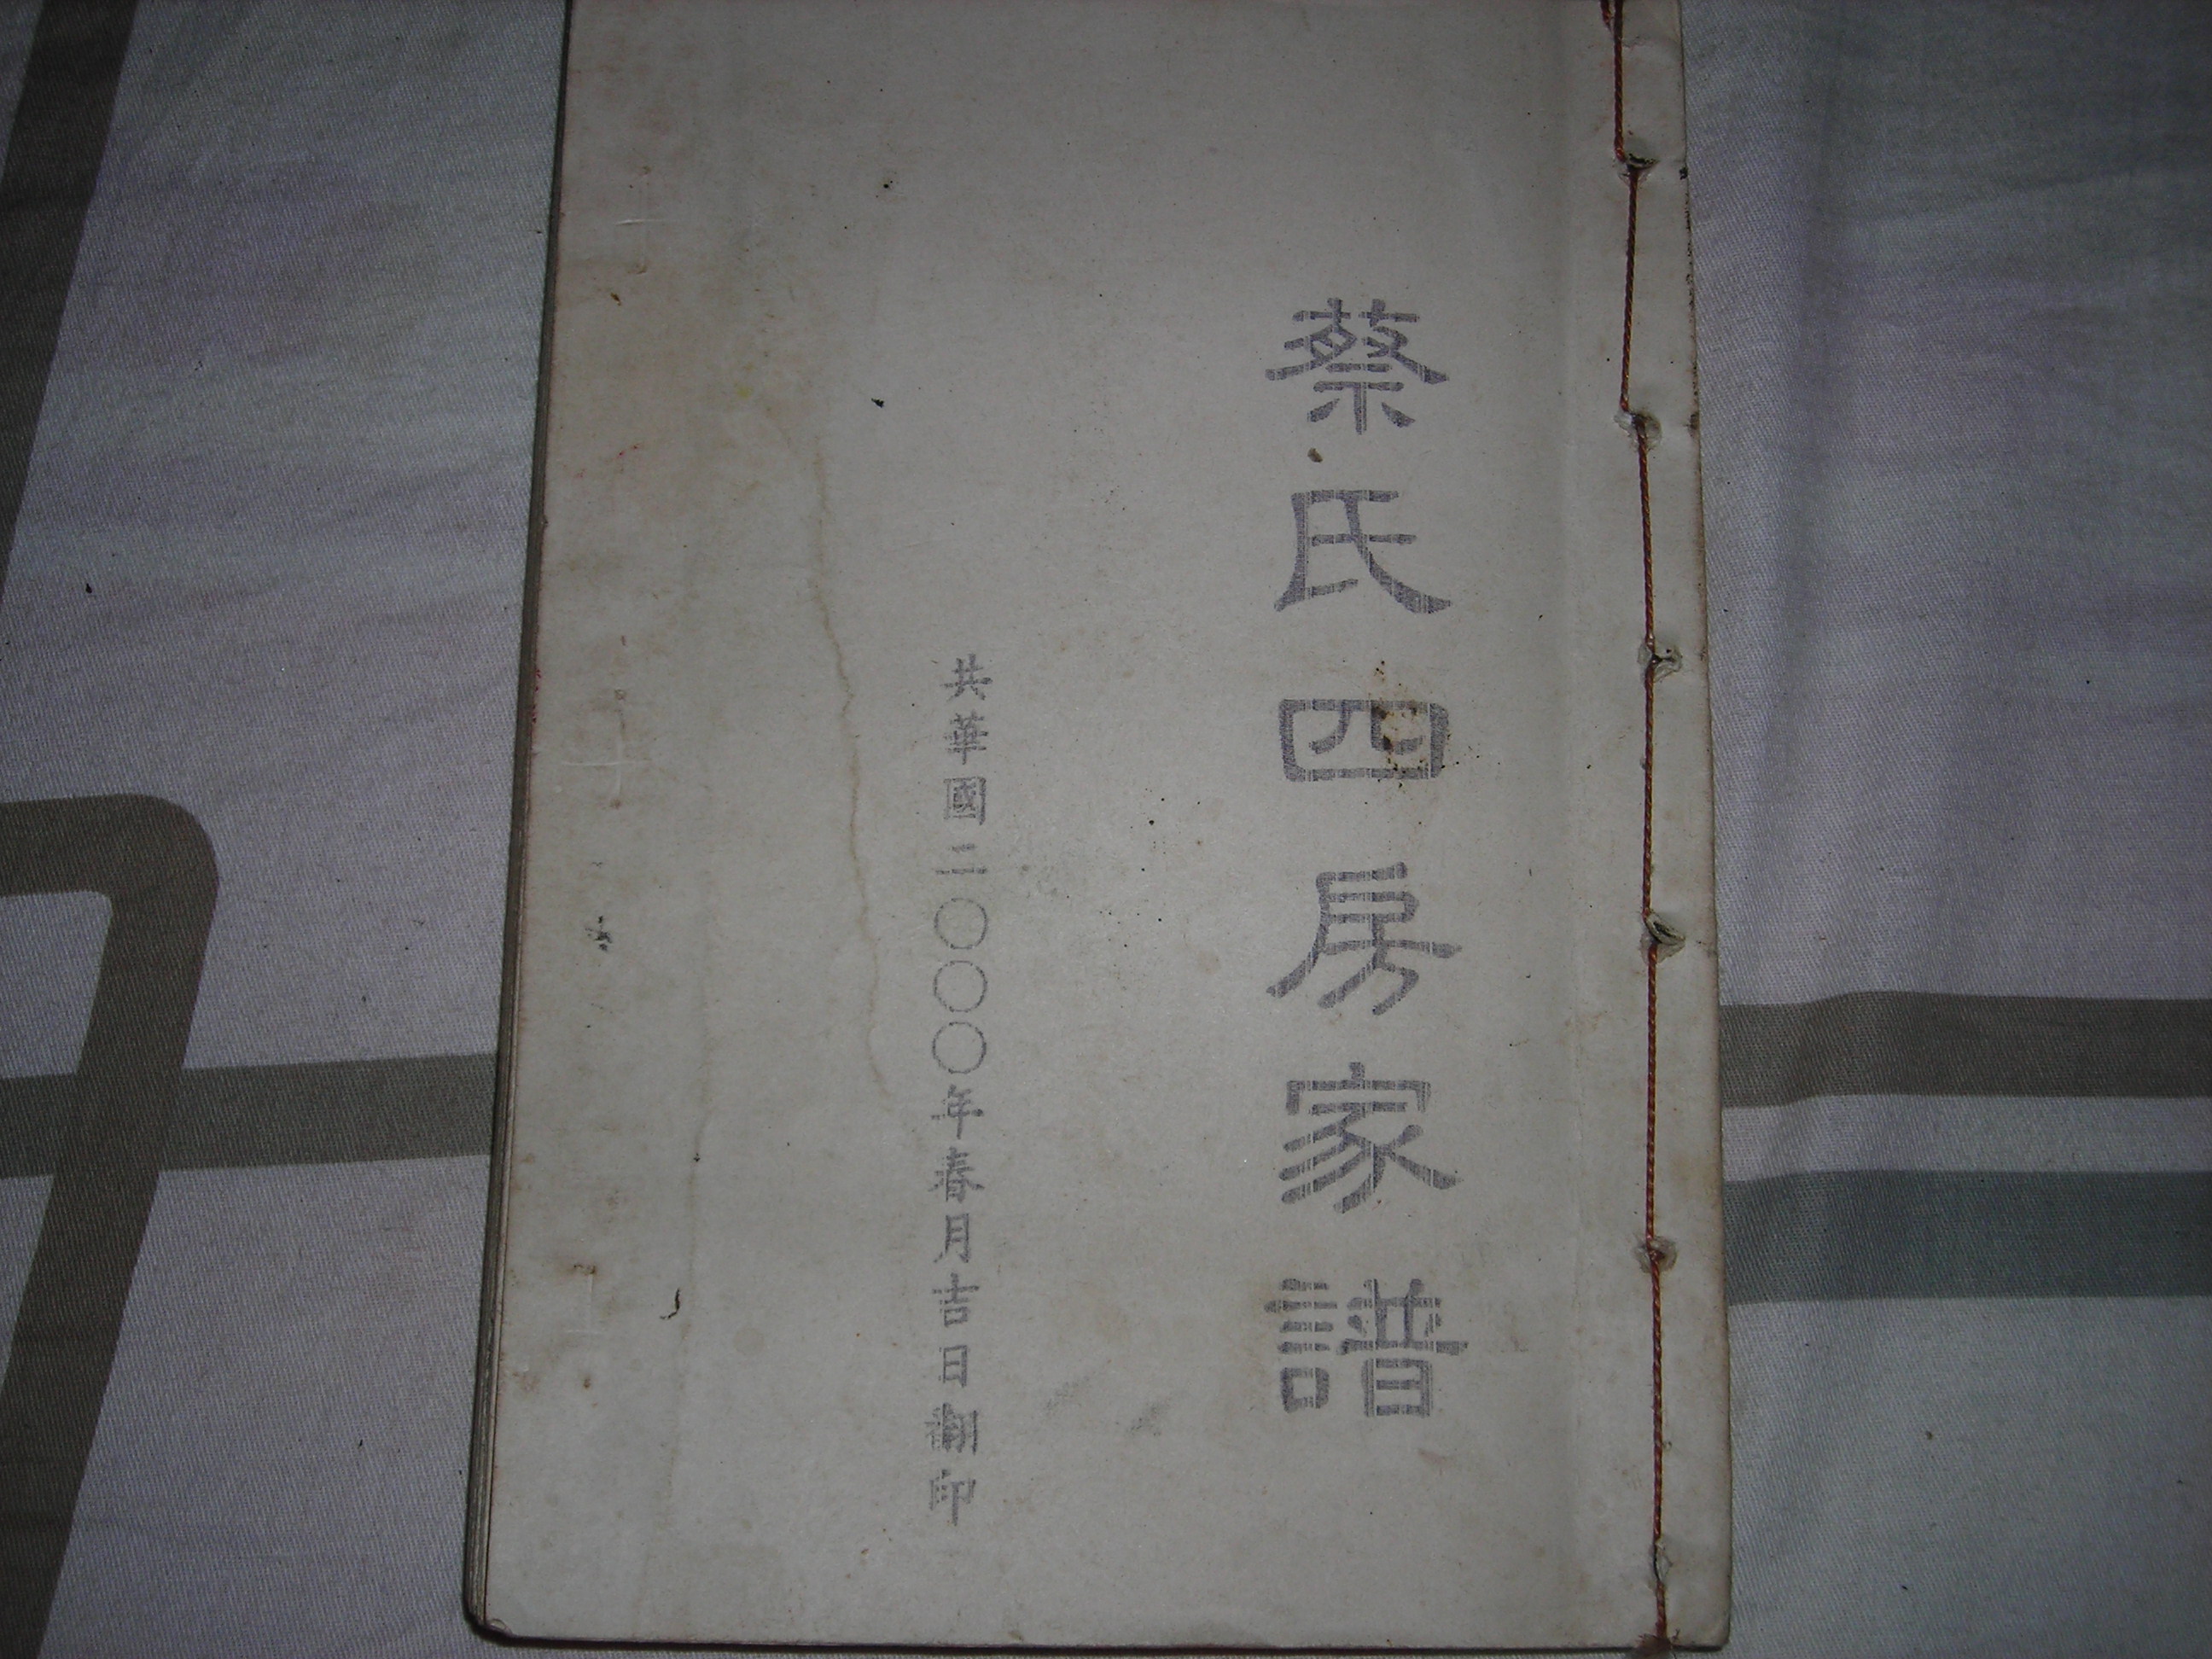 蔡氏四房家譜
共華國二〇〇〇年春月吉日翻印